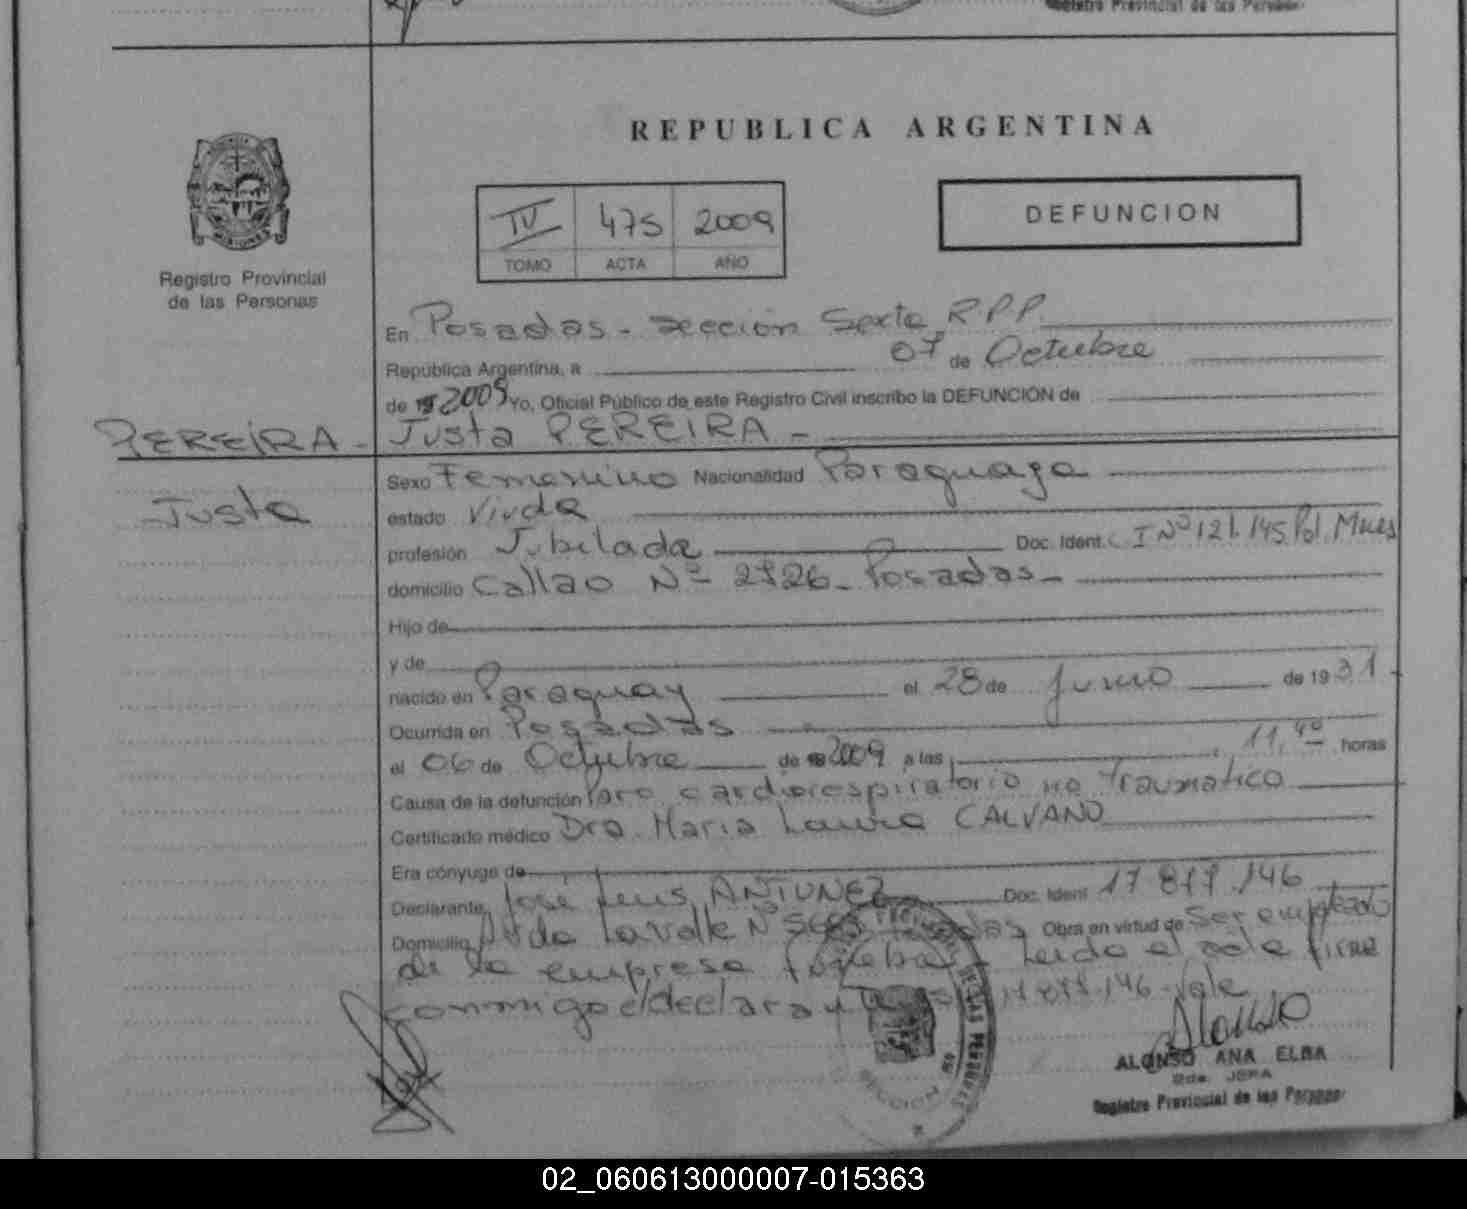 Registro Provincial de las Personas
REPUBLICA ARGENTINA
IV 475 2009
TOMO ACTA AÑO
DEFUNCION
Registro Provincial
de las Personas
En Posadas - Sección Sexta R.P.P.
República Argentina, a 07 de Octubre
de 2009 Yo, Oficial Público de este Registro Civil inscribo la DEFUNCION de
PEREIRA - Justa PEREIRA -
Justa
Sexo Femenino Nacionalidad Paraguaya
estado Viuda
profesión Jubilada Doc. Ident. C I Nº 121.145 Pol. Mnes
domicilio Callao Nº 2926 - Posadas -
Hijo de
y de
nacido en Paraguay el 28 de Junio de 1931
Ocurrida en Posadas
el 06 de Octubre de 2009 a las 11,40 horas
Causa de la defunción Paro cardiorespiratorio no Traumatico
Certificado médico Dra. Maria Laura CALVANO
Era cónyuge de
Declarante José Luis ANTUNEZ Doc. Ident 17.877.146
Domicilio Avda Lavalle Nº Posadas Obra en virtud de Ser empleado
de la empresa fúnebre - Leido el acta firma
conmigo el declarante 17.877.146 - Vale
Alonso
ALONSO ANA ELBA
2da. JEFA
Registro Provincial de las Personas
SECCION
02_060613000007-015363